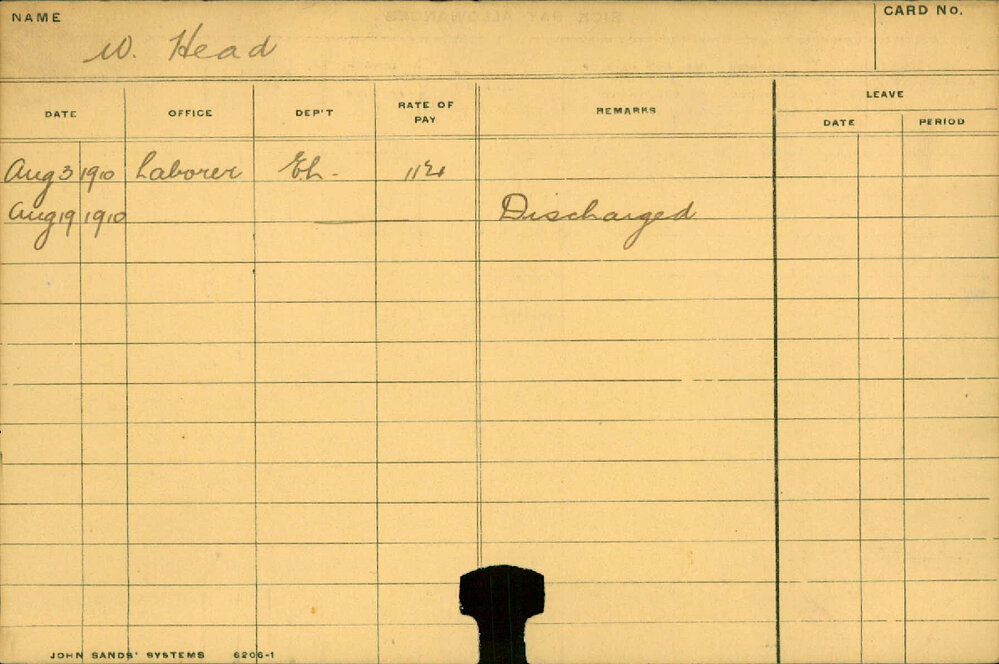 NAME
W. Head
CARD No.
DATE OFFICE DEP'T RATE OF PAY REMARKS LEAVE
DATE PERIOD
Aug 3 1910 Laborer
Aug 19 1910 Discharged
JOHN SANDS' SYSTEMS 6206-1